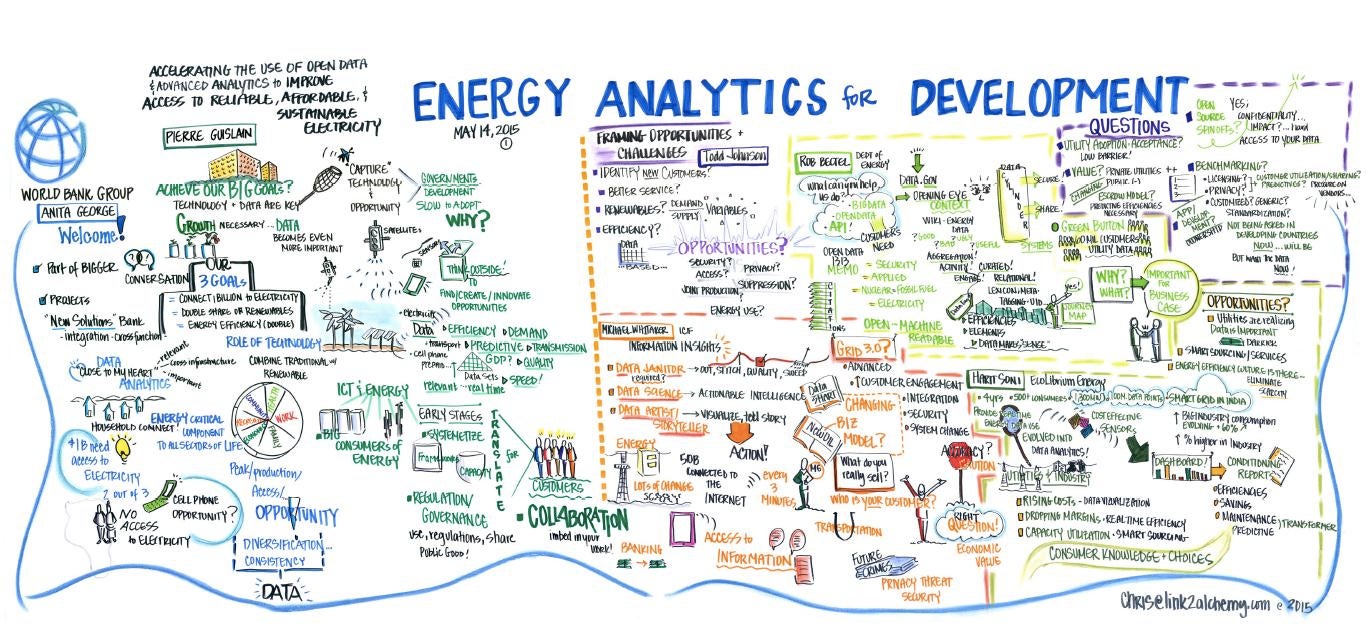 ACCELERATING THE USE OF OPEN DATA
& ADVANCED ANALYTICS to IMPROVE
ACCESS TO RELIABLE, AFFORDABLE, &
SUSTAINABLE
ELECTRICITY
ENERGY ANALYTICS for DEVELOPMENT
MAY 14, 2015
1
WORLD BANK GROUP
ANITA GEORGE
Welcome!
Part of BIGGER
CONVERSATION
PROJECTS
"New Solutions" Bank
- integration - cross function -
DATA
"CLOSE TO MY HEART"
ANALYTICS
relevant
cross infrastructure
important
HOUSEHOLD CONNECT!
ENERGY CRITICAL
COMPONENT
TO ALL SECTORS OF LIFE
+1B need
access to
ELECTRICITY
2 OUT OF 3
NO
ACCESS
to ELECTRICITY
CELL PHONE
OPPORTUNITY?
PIERRE GUISLAIN
ACHIEVE OUR BIG GOALS?
TECHNOLOGY + DATA ARE KEY
GROWTH NECESSARY... DATA
BECOMES EVEN
MORE IMPORTANT
OUR
3 GOALS
= CONNECT 1 BILLION TO ELECTRICITY
= DOUBLE SHARE OF RENEWABLES
= ENERGY EFFICIENCY (DOUBLE)
ROLE OF TECHNOLOGY
COMBINE TRADITIONAL w/
RENEWABLE
HEALTH
WORK
FAMILY
COMMUNITY
Peak/production/
Access/
OPPORTUNITY
DIVERSIFICATION...
CONSISTENCY
DATA
"CAPTURE"
TECHNOLOGY
&
OPPORTUNITY
SATELLITES
SENSORS
GOVERNMENTS
DEVELOPMENT
SLOW to ADOPT
WHY?
THINK OUTSIDE!
TO
FIND/CREATE/INNOVATE
OPPORTUNITIES
electricity
Data
EFFICIENCY DEMAND
transport PREDICTIVE TRANSMISSION
cell phone
prepaid
GDP? QUALITY
Data Sets SPEED!
relevant real time
ICT & ENERGY
BIG
CONSUMERS OF
ENERGY
EARLY STAGES
SYSTEMETIZE
FRAMEWORKS
CAPACITY
REGULATION/
GOVERNANCE
use, regulations, share
Public Good!
TRANSLATE
for
CUSTOMERS
COLLABORATION
imbed in your
work!
FRAMING OPPORTUNITIES +
CHALLENGES
Todd Johnson
IDENTIFY NEW CUSTOMERS!
BETTER SERVICE?
RENEWABLES? DEMAND
SUPPLY
VARIABLES
EFFICIENCY?
DATA
BASED...
OPPORTUNITIES?
SECURITY?
ACCESS?
PRIVACY?
JOINT PRODUCTION
SUPPRESSION?
ENERGY USE?
MICHAEL WHITAKER ICF
INFORMATION INSIGHTS
DATA JANITOR
required?
CUT, STITCH, QUALITY, SPEED
DATA SCIENCE ACTIONABLE INTELLIGENCE
DATA ARTIST/
STORYTELLER
VISUALIZE, tell STORY
ACTION!
DATA
SMART
ENERGY
LOTS OF CHANGE
50B
CONNECTED TO
THE
INTERNET
every
3
MINUTES
BANKING
ACCESS to
INFORMATION
NEW DIL
ME
GRID 3.0?
ADVANCED
CUSTOMER ENGAGEMENT
INTEGRATION
SECURITY
SYSTEM CHANGE
CHANGING
BIZ
MODEL?
What do you
really sell?
WHO IS YOUR CUSTOMER?
TRANSPORTATION
FUTURE
CRIMES
PRIVACY THREAT
SECURITY
ACCURACY?
CAUTION
RIGHT
QUESTION!
ECONOMIC
VALUE
ROB BECTEL DEPT of
ENERGY
what can gov help
us do?
BIG DATA
OPEN DATA
API!
CUSTOMERS
NEED
DATA.GOV
OPENING EYE
CONTEXT
WIKI - ENERGY
DATA
?GOOD ?UGLY
?BAD ?USEFUL
AGGREGATION?
ACTIVITY CURATED!
ENGAGE RELATIONAL!
LEXICON/META-
TAGGING - UID
EFFICIENCIES
ELEMENTS
DATA MAKES SENSE
OPEN DATA
MEMO
= SECURITY
= APPLIED
= NUCLEAR + FOSSIL FUEL
= ELECTRICITY
OPEN - MACHINE
READABLE
DATA
SECURE
SHARE
SYSTEMS
yes!
MAP
QUESTIONS
UTILITY ADOPTION - ACCEPTANCE?
LOW BARRIER!
VALUE? PRIVATE UTILITIES ++
PUBLIC (-)
CHANGING ESCROW MODEL?
PREDICTING EFFICIENCIES
NECESSARY
GREEN BUTTON
60 MIL CUSTOMERS
UTILITY DATA
WHY?
WHAT?
IMPORTANT
FOR
BUSINESS
CASE
OPEN
SOURCE
SPINOFFS?
YES;
CONFIDENTIALITY...
IMPACT?... need
ACCESS TO YOUR DATA
BENCHMARKING?
LICENSING?
PRIVACY?
CUSTOMER UTILIZATION/SHARING?
PREDICTIVE?
PRESSURE ON
VENDORS...
CUSTOMIZED? GENERIC?
STANDARDIZATION?
APP/
DEVELOP-
MENT?
OWNERSHIP
NOT BEING ASKED IN
DEVELOPING COUNTRIES
NOW ... WILL BE
BUT WANT the DATA
NOW!
OPPORTUNITIES?
UTILITIES are REALIZING
DATA IS IMPORTANT
SMART SOURCING/SERVICES
ENERGY EFFICIENCY CULTURE IS THERE...
ELIMINATE
SCARCITY
HARIT SONI ECOLIBRIUM ENERGY
4 yrs +500+ CONSUMERS
100M DATA POINTS
SMART GRID IN INDIA
EVOLVED INTO
DATA ANALYTICS!
COST EFFECTIVE
SENSORS
BIG INDUSTRY CONSUMPTION
EVOLVING +60%
% higher in INDUSTRY
UTILITIES & INDUSTRY
DASHBOARD!
CONDITIONING
REPORTS
EFFICIENCIES
SAVINGS
MAINTENANCE
PREDICTIVE
TRANSFORMER
RISING COSTS - DATA VISUALIZATION
DROPPING MARGINS - REAL TIME EFFICIENCY
CAPACITY UTILIZATION - SMART SOURCING
CONSUMER KNOWLEDGE + CHOICES
chris@link2alchemy.com © 2015